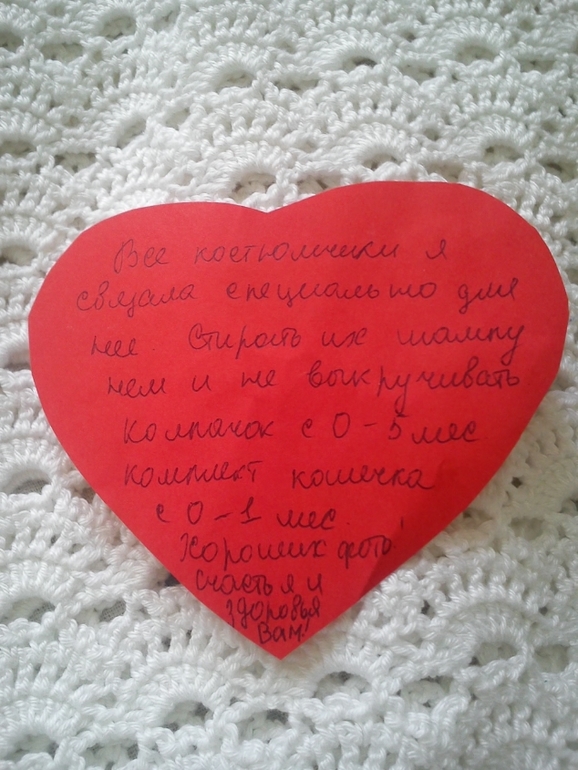 Все костюмчики я
связала специально для
нее. Стирать их шампу
нем и не выкручивать
Колпачок с 0-5 мес
комплект кошечка
с 0-1 мес.
Хороших фото!
Счастья и
здоровья
Вам!